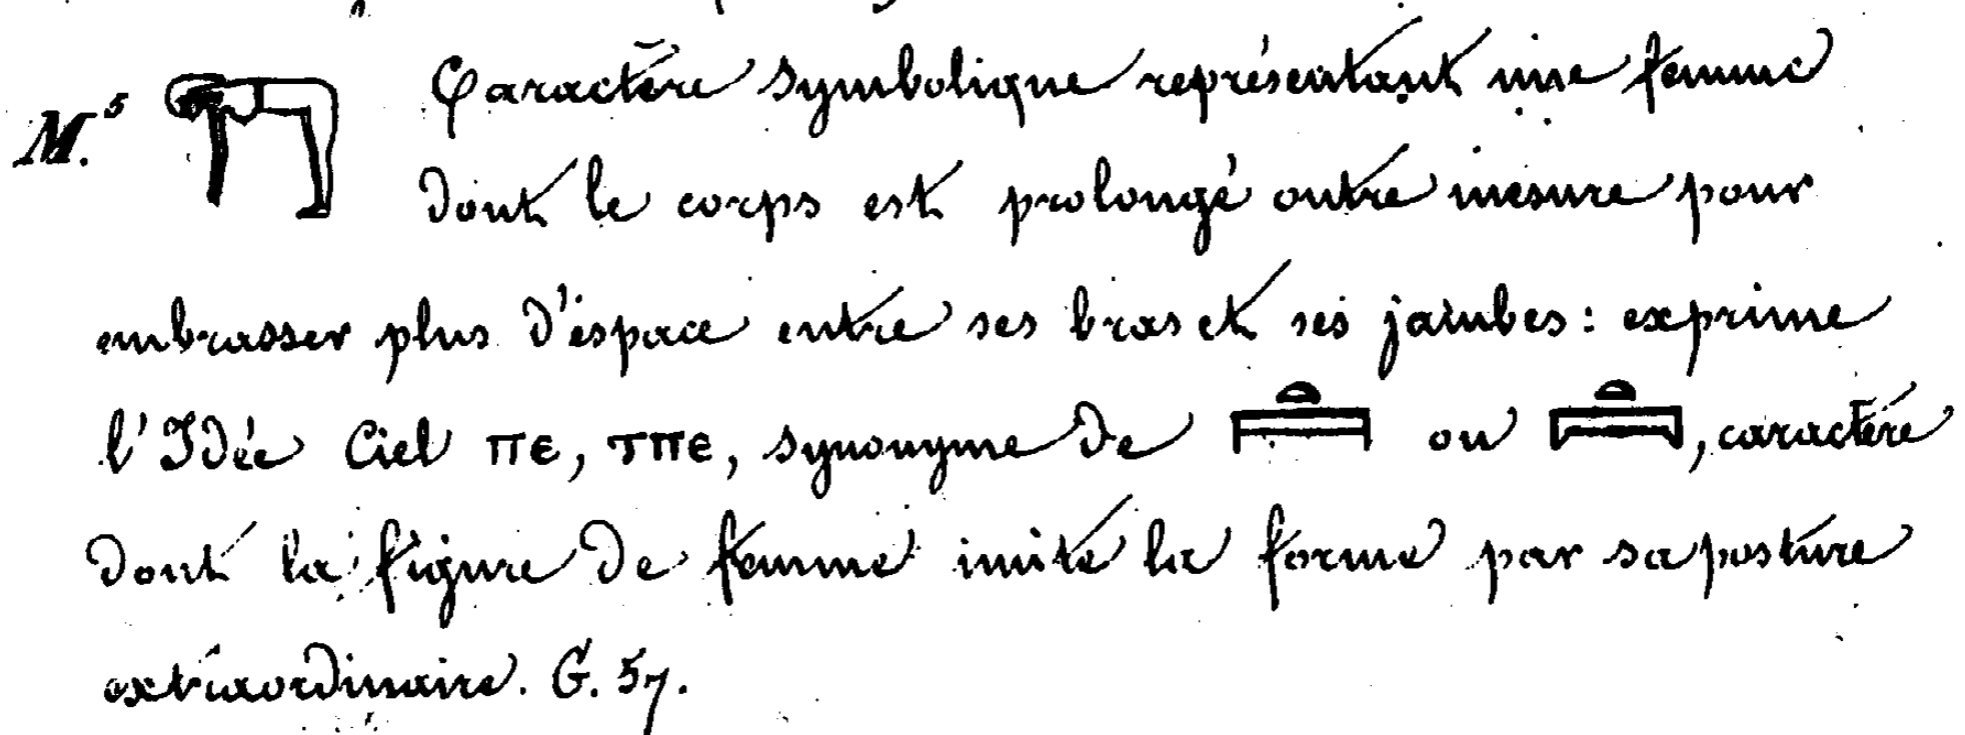 M.⁵ Caractère symbolique représentant une femme
dont le corps est prolongé outre mesure pour
embrasser plus d'espace entre ses bras et ses jambes : exprime
l'Idée Ciel ⲡⲉ, ⲧⲡⲉ, synonyme de ou , caractère
dont la figure de femme imite la forme par sa posture
extraordinaire. G. 57.